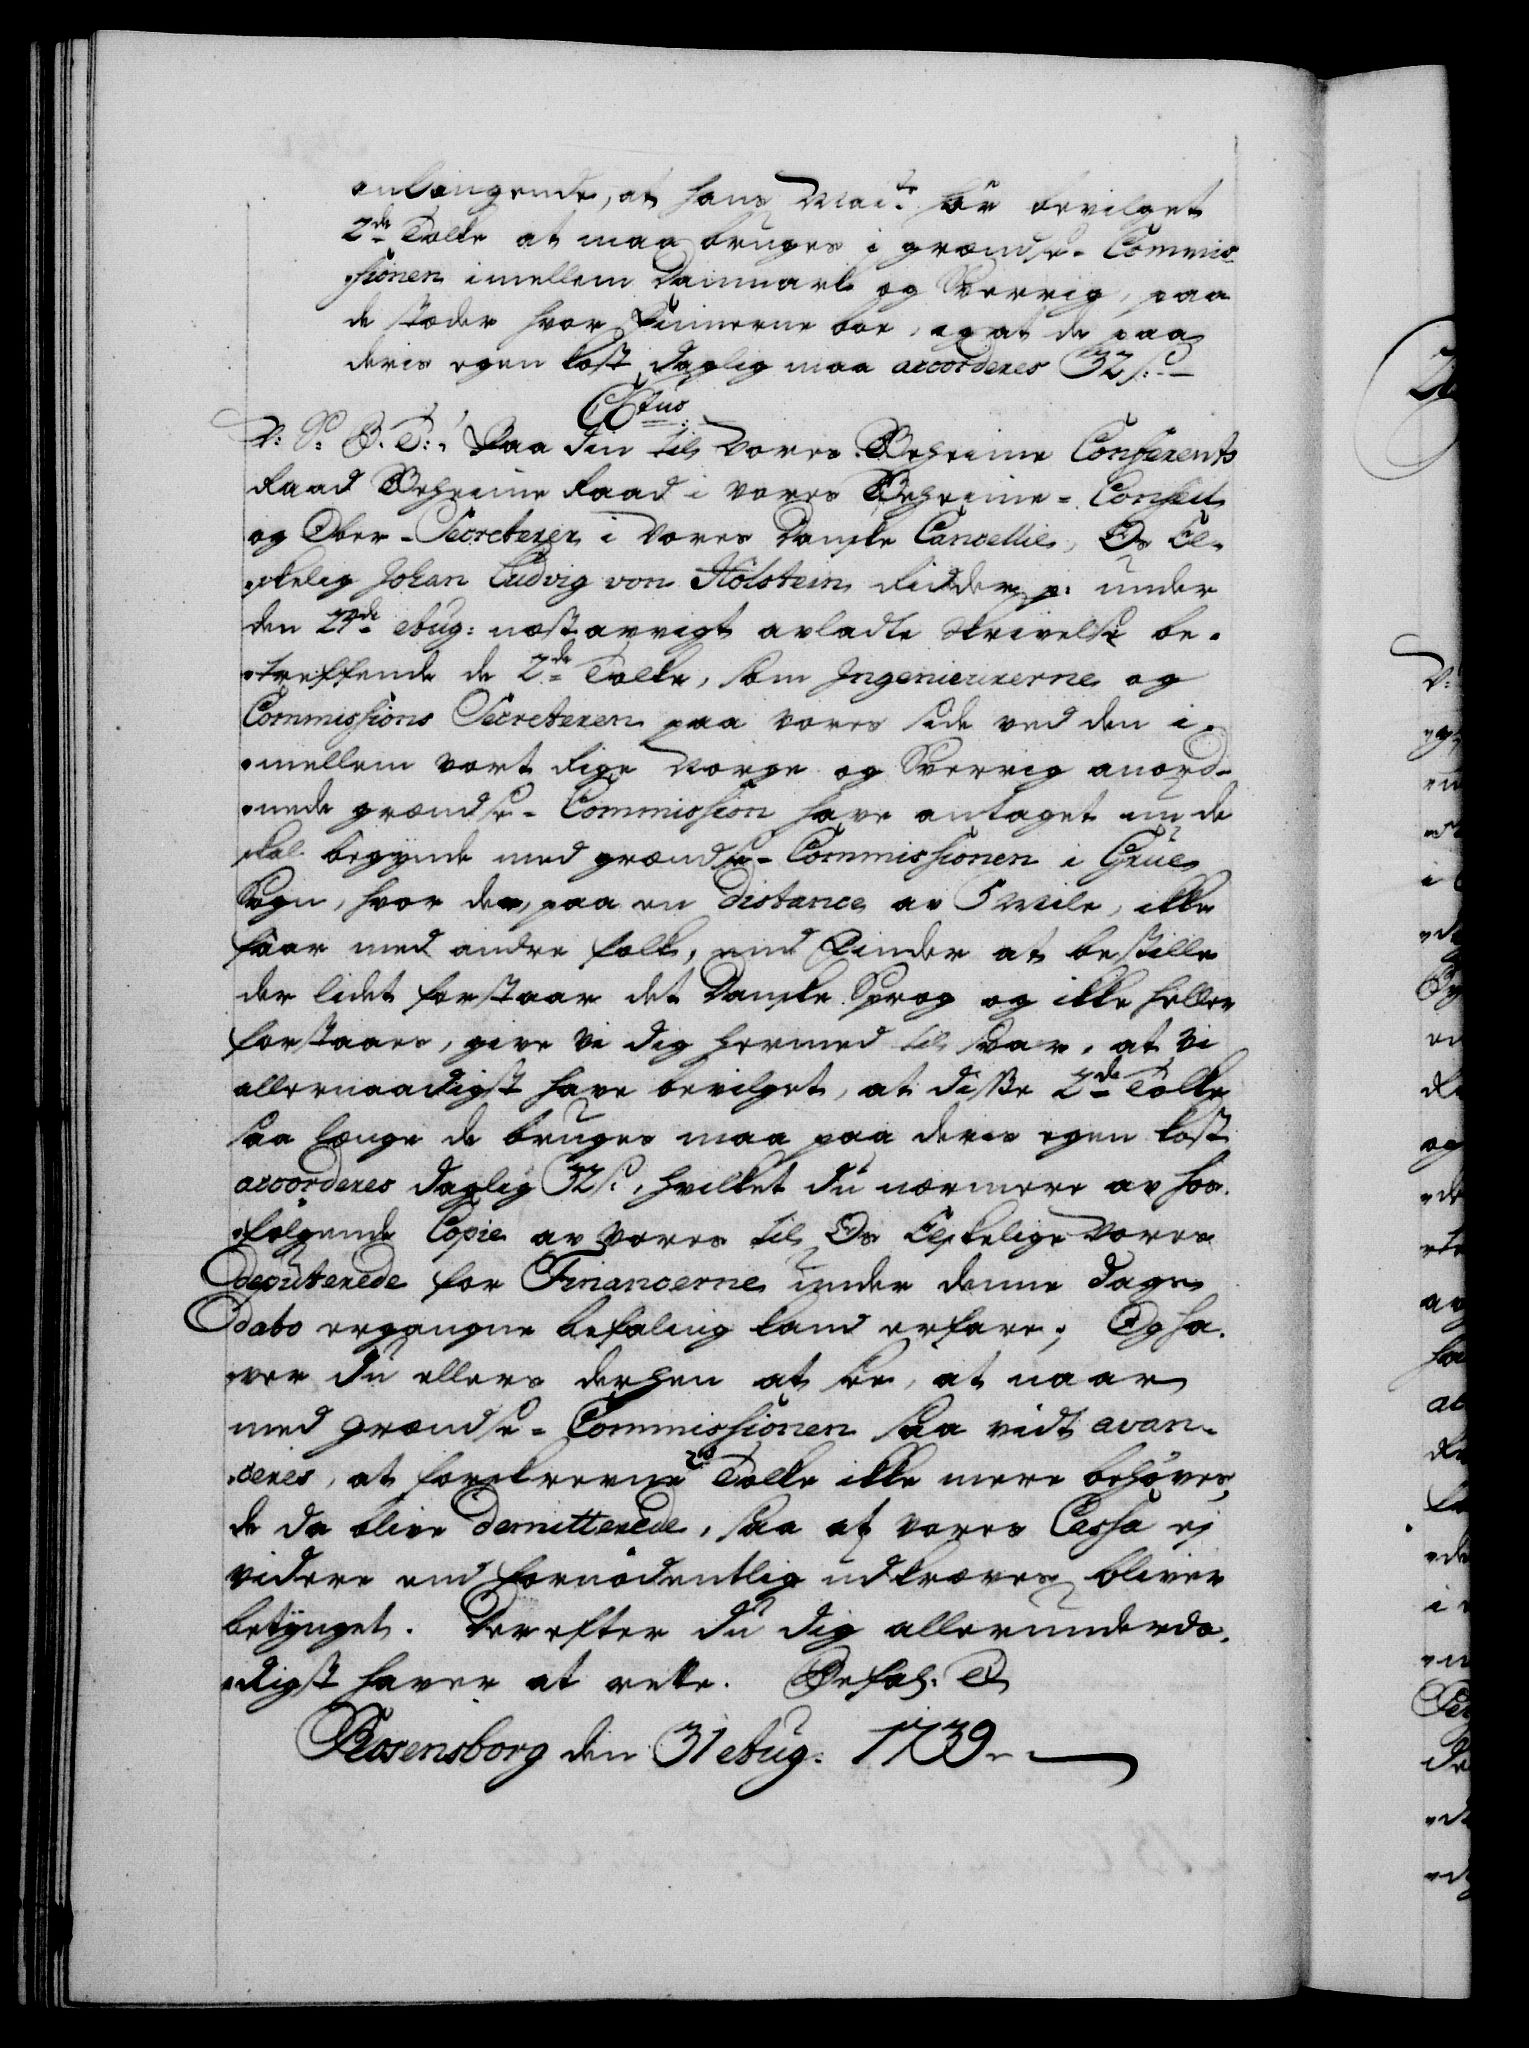 anlangende, at Hans Mai:te har bevilget
2de Tolke at maa bruges i grændse-Commis-
sionen imellem Danmark og Sverrig, paa
de stæder hvor Finnerne boe, og at de paa
deris egen kost daglig maa accorderes 32 s:
C 5tus
V: S: B: T:, Paa din til Vores Geheime Conferents
Raad Geheime Raad i Vores Geheime-Conseil
og Ober-Secreterer i Vores Danske Cancellie, Os El-
skelig Johan Ludvig von Holstein Ridder p: under
den 27de Aug: næstavvigt avladte Skrivelse be-
træffende de 2de Tolke, som Ingenieurerne og
Commissions Secreteren paa Vores side ved den i-
mellem vort Rige Norge og Sverrig anord-
nede grændse-Commission have antaget nu de
skal begynde med grændse-Commissionen i Grue
Sogn, hvor der, paa en Distance av 5 Mile, ikke
faaer med andre folk, end Finder at bestille
der lidet forstaar det Danske Sprog og ikke heller
forstaaes, give Vi dig hermed til svar, at Vi
allernaadigst have bevilget, at disse 2de Tolke
saa længe de bruges maa paa deres egen kost
accorderes daglig 32 s:, hvilket du nærmere av hos-
følgende Copie av Vores til Os Elskelige Vores
Deputerede for Financerne under denne Dags
Dato ergangne befaling kand erfare; Og ha-
ver du ellers derhen at see, at naar
med grændse-Commissionen saa vidt avan-
ceres, at forskrevne 2de Tolke ikke mere behøves,
de da blive Demitterede, saa at Vores Cassa ej
videre end fornødentlig udkræves bliver
betynget. Derefter du dig allerunderda-
nigst haver at rette. Befal: D
Rosensborg den 31 Aug: 1739